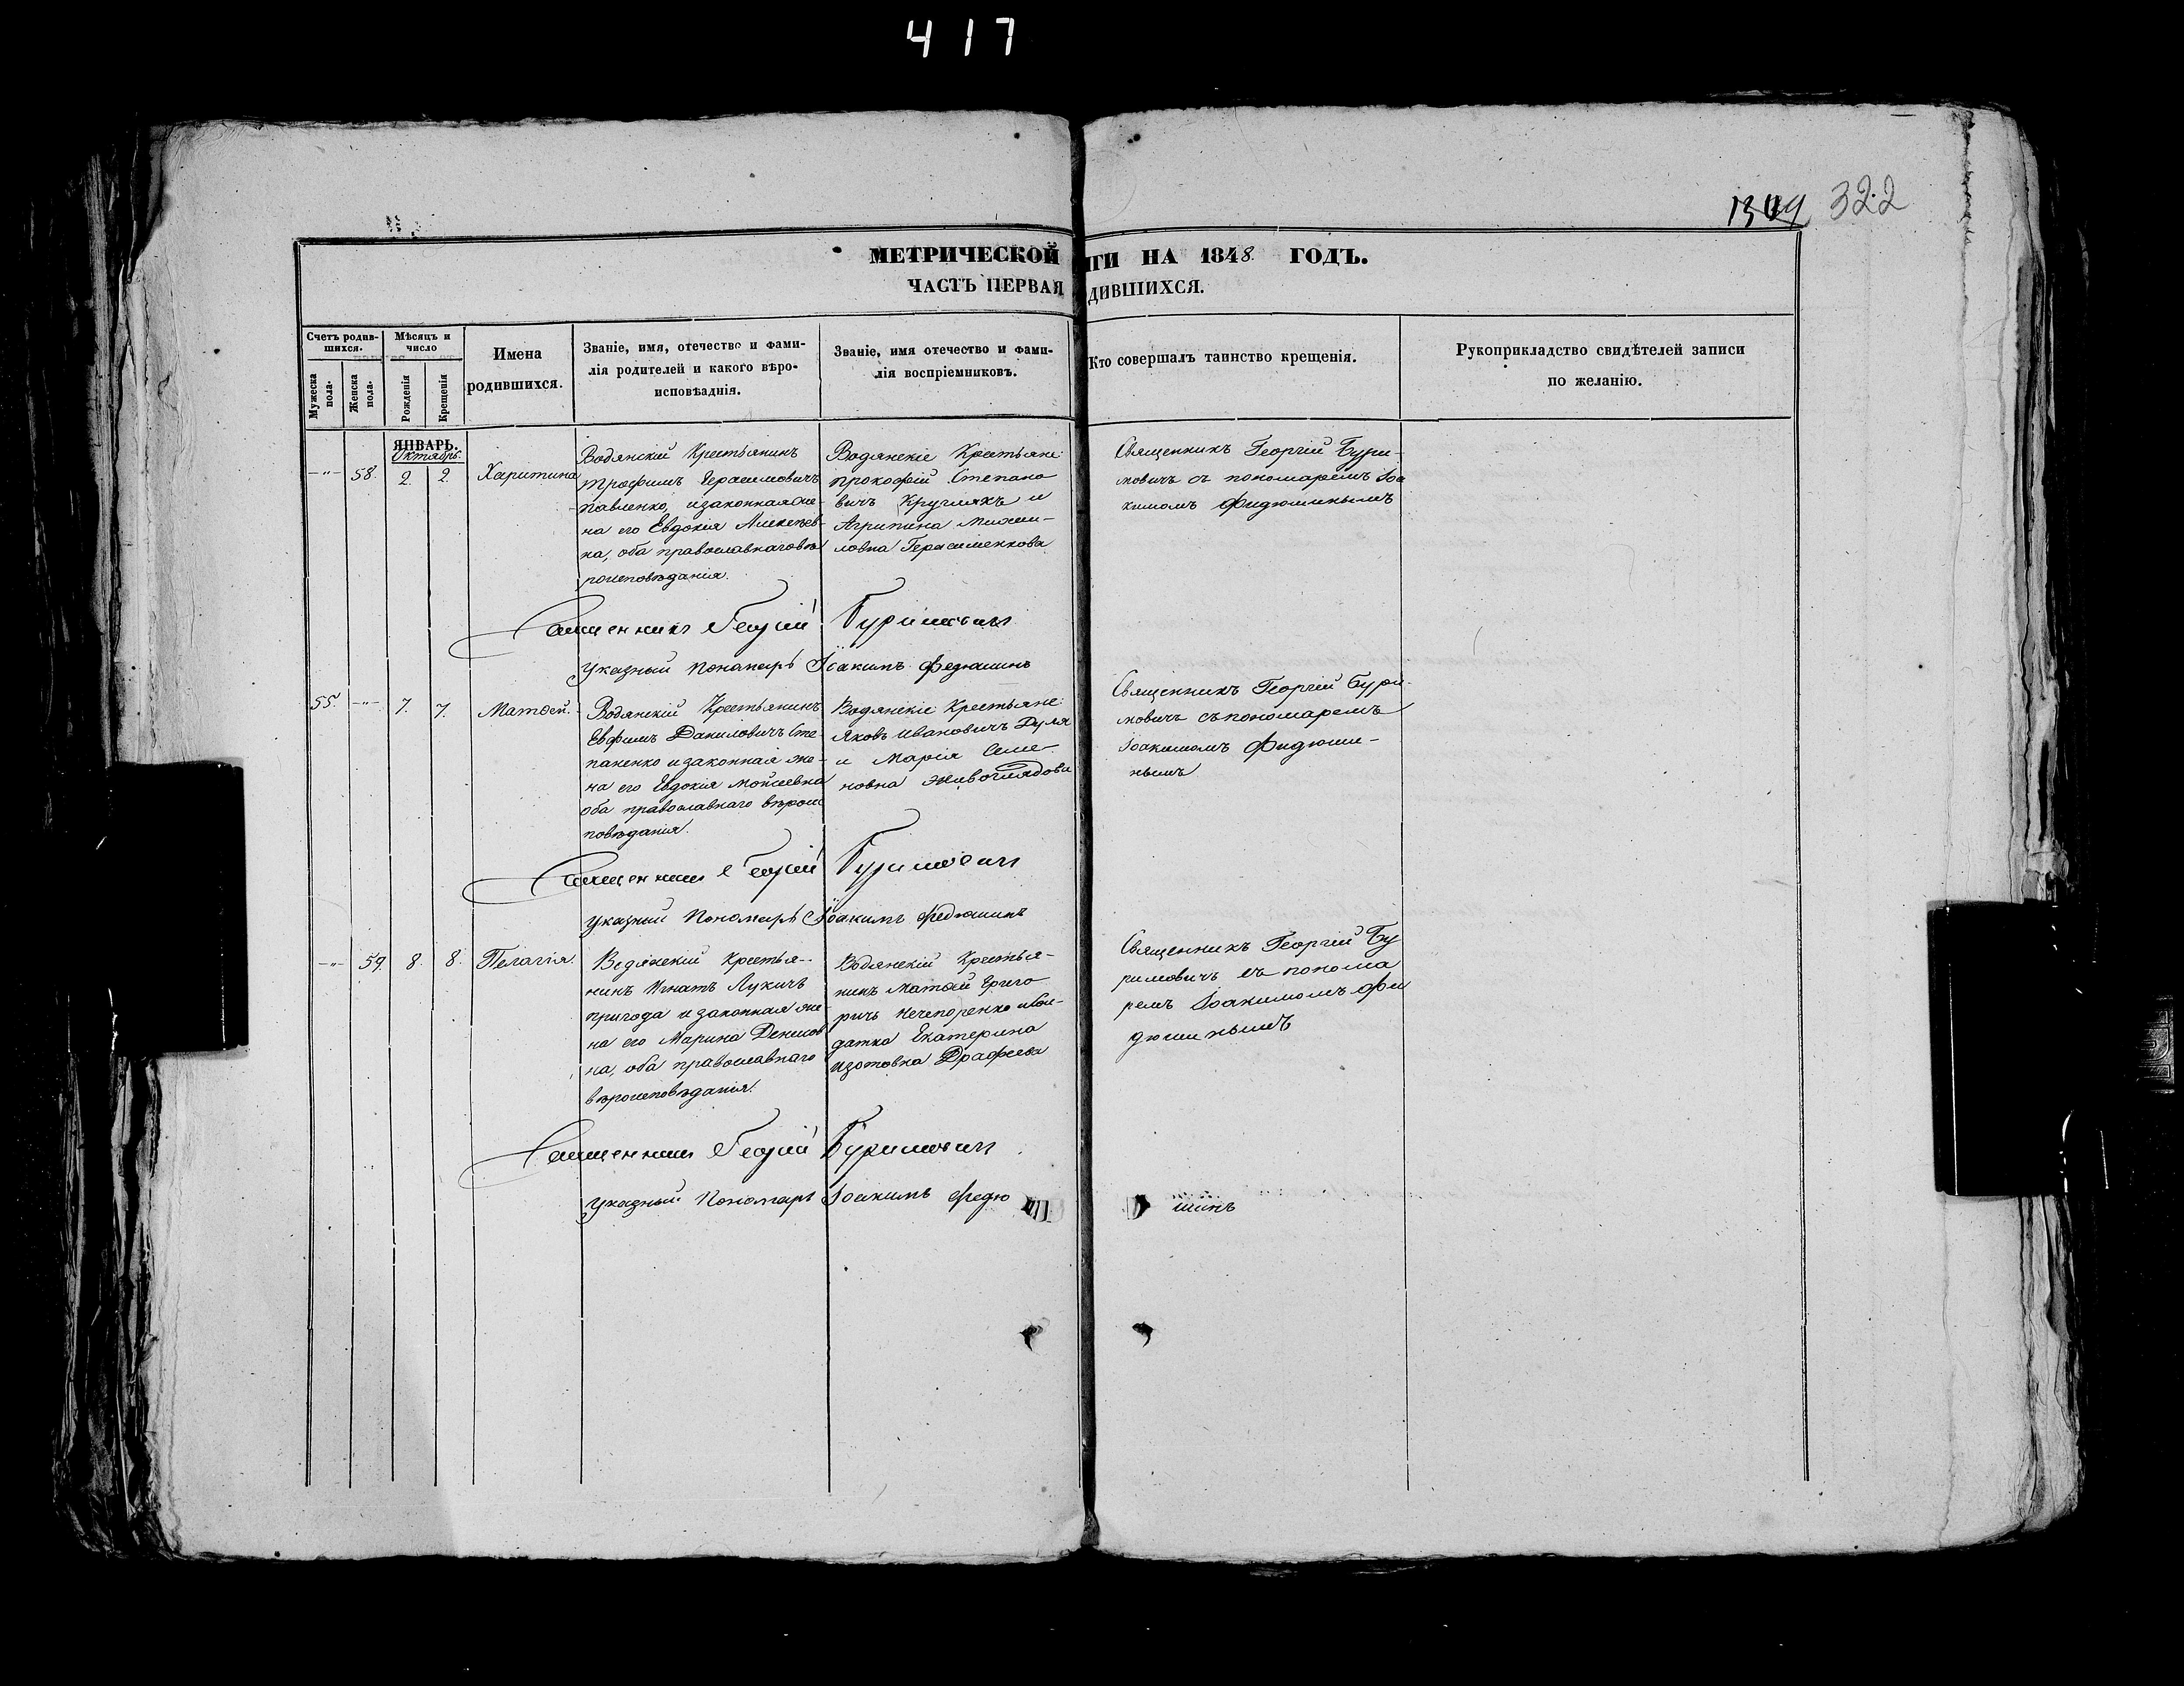 417
1309 322
МЕТРИЧЕСКОЙ ГИ НА 1848. ГОДЪ.
ЧАСТЬ ПЕРВАЯ ДИВШИХСЯ.
Счетъ родив-
шихся.
Мужеска пола.
Женска пола.
Мѣсяцъ и
число
Рожденія
Крещенія
Имена
родившихся.
Званіе, имя, отечество и фами-
лія родителей и какого вѣро-
исповѣаднія.
Званіе, имя отечество и фами-
лія воспріемниковъ.
Кто совершалъ таинство крещенія.
Рукоприкладство свидѣтелей записи
по желанію.
ЯНВАРЬ.
Октябрь.
-"- 58. 2. 2. Харитина
Водянскій Крестьянинъ
Трофимъ Герасимовичъ
Павленко, и законная же-
на его Евдокія Алексѣев-
на, оба православнаго вѣ
роисповѣданія.
Водянскіе Крестьяне:
Прокофій Степано
вичъ Круглякъ и
Агрипина Михаи-
ловна Герасименкова
Священникъ Георгій Бури-
мовичъ съ пономаремъ Іоа
кимомъ Фидюшинымъ
Священникъ Георгій Буримовичъ
Указный Пономарь Іоакимъ Федюшинъ
55. -"- 7. 7. Матѳей.
Водянскій Крестьянинъ
Евфимъ Даниловичъ Сте-
паненко и законная же-
на его Евдокія Мойсеевна
оба православнаго вѣроис
повѣданія.
Водянскіе Крестьяне:
Яковъ Ивановичъ Дуля
и Марія Семе-
новна Живоглядова
Священникъ Георгій Бури-
мовичъ съ пономаремъ
Іоакимомъ Фидюши-
нымъ
Священникъ Георгій Буримовичъ
Указный Пономарь Іоакимъ Федюшинъ
-"- 59. 8. 8. Пелагія.
Водянскій Крестья-
нинъ Игнатъ Лукичъ
Пригода и законная же-
на его Марина Денисов
на, оба православнаго
вѣроисповѣданія.
Водянскій Крестья-
нинъ Матѳей Григо
ричъ Нечепоренко и Сол-
датка Екатерина
Изотовна
Священникъ Георгій Бу
римовичъ съ понома
ремъ Іоакимомъ Фи
дюшинымъ
Священникъ Георгій Буримовичъ
Указный Пономарь Іоакимъ Федю шинъ